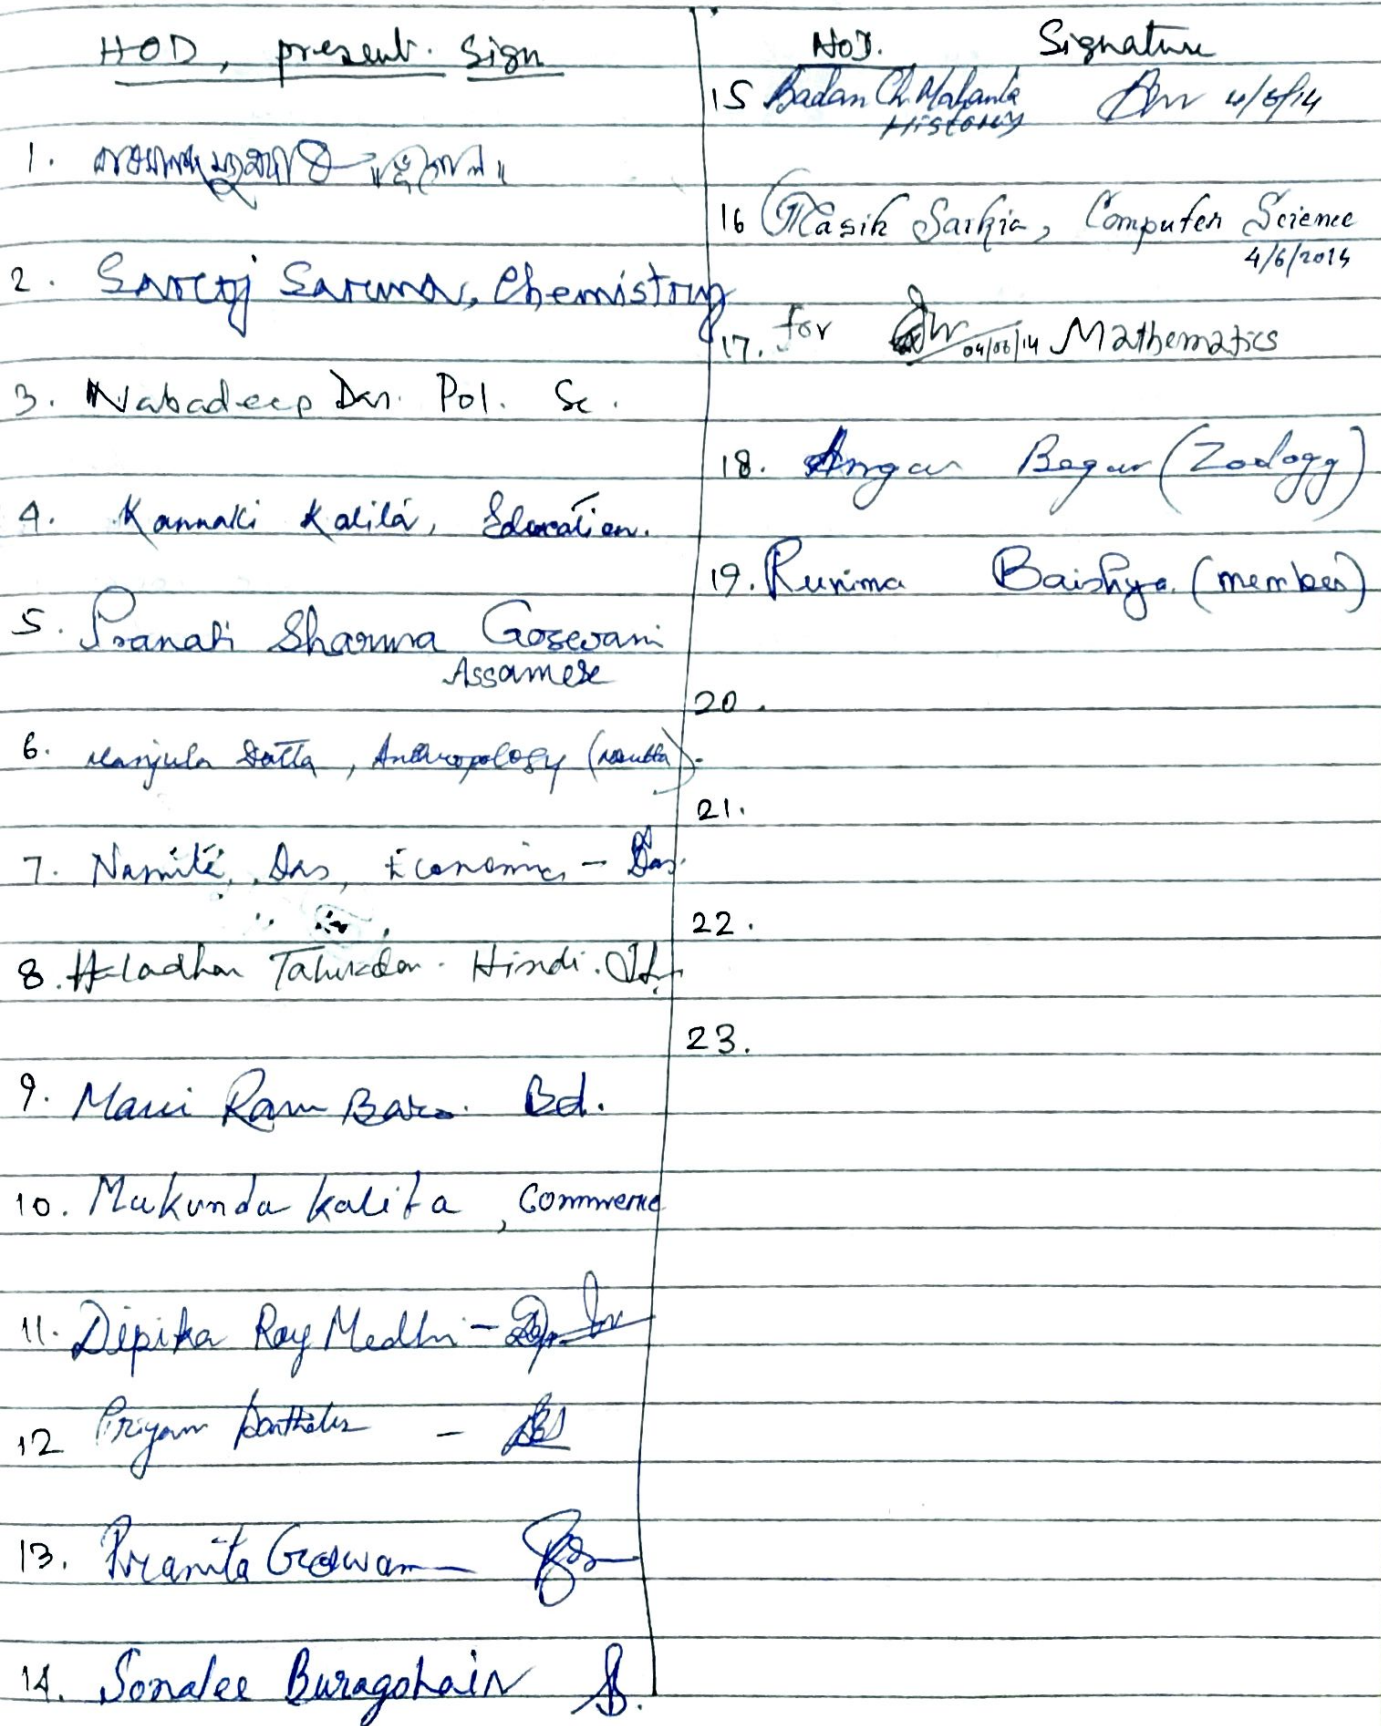 HOD, present Sign
1.
2. Saroj Sarma, Chemistry
3. Nabadeep Das. Pol. Sc.
4. Kannaki Kalita, Education.
5. Pranati Sharma Goswami
Assamese
6. Manjula Dutta, Anthropology
7. Namita Das, Economics - Das
8. Haladhar Talukdar. Hindi.
9. Mani Ram Baro. Bd.
10. Mukunda Kalita, Commerce
11. Dipika Roy Medhi -
12 Priyam -
13. Pranita Goswami
14. Sonalee Buragohain
HOD. Signature
15 Badan Ch. Mahanta 4/6/14
History
16 Rasik Saikia, Computer Science
4/6/2014
17. for 04/06/14 Mathematics
18. (Zoology)
19. Runima Baishya (member)
20.
21.
22.
23.